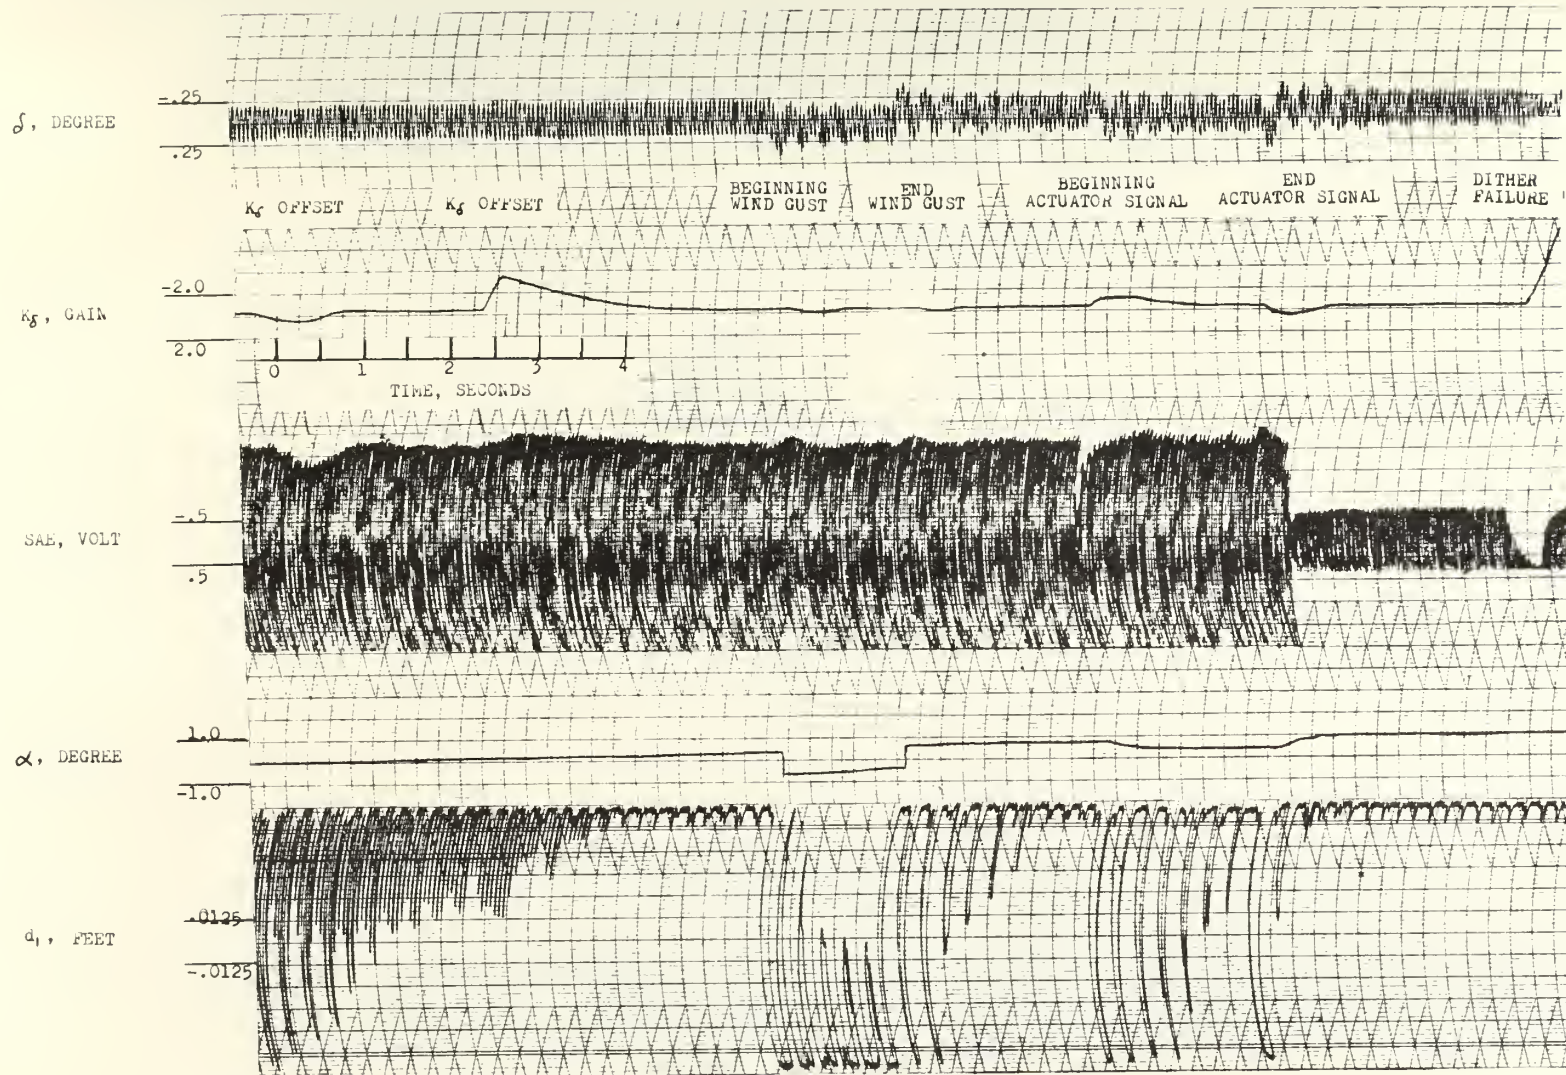 -.25
δ, DEGREE
.25
Kδ OFFSET
Kδ OFFSET
BEGINNING
WIND GUST
END
WIND GUST
BEGINNING
ACTUATOR SIGNAL
END
ACTUATOR SIGNAL
DITHER
FAILURE
-2.0
Kδ, GAIN
2.0
0 1 2 3 4
TIME, SECONDS
-.5
SAE, VOLT
.5
1.0
α, DEGREE
-1.0
.0125
d₁, FEET
-.0125